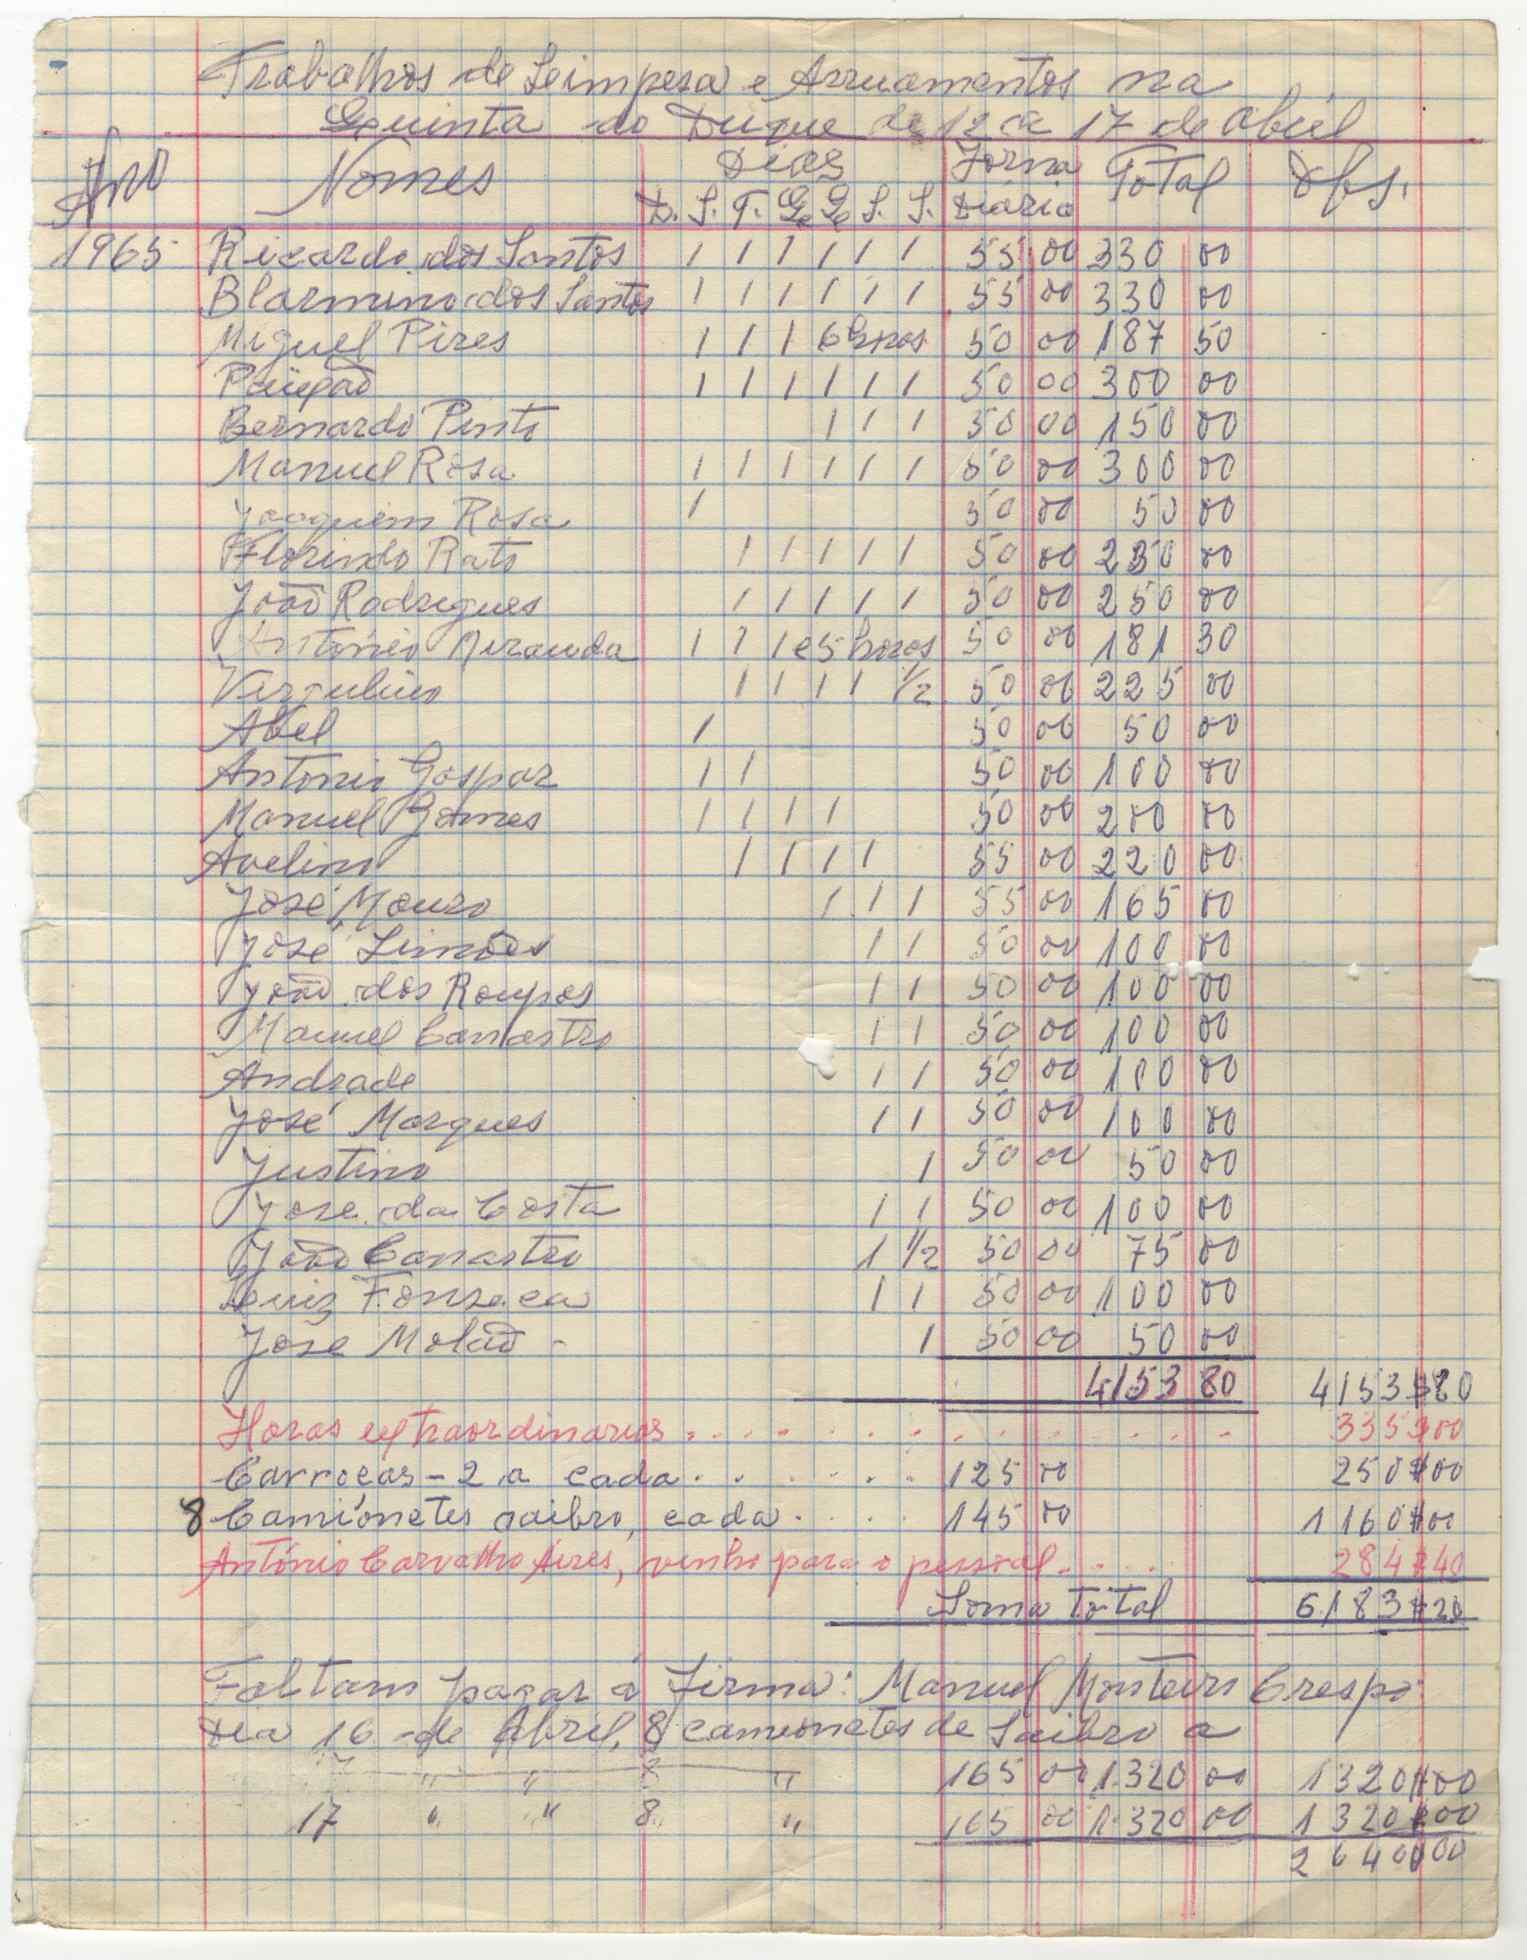 Trabalhos de Leimpesa e Arruamentos na
Quinta do Duque de 12 a 17 de Abril
Ano Nomes Dias Jorna Total Obs.
D. S. T. Q. Q. S. S. Diária
1965 Ricardo dos Santos 1 1 1 1 1 1 55 00 330 00
Blarmino dos Santos 1 1 1 1 1 1 55 00 330 00
Miguel Pires 1 1 1 6 horas 50 00 187 50
1 1 1 1 1 1 50 00 300 00
Bernardo Pinto 1 1 1 50 00 150 00
Manuel Rosa 1 1 1 1 1 1 50 00 300 00
Joaquim Rosa 1 50 00 50 00
Florindo Rato 1 1 1 1 1 50 00 250 00
João Rodrigues 1 1 1 1 1 50 00 250 00
António Miranda 1 1 1 e 5 horas 50 00 181 30
Vergulino 1 1 1 1 1/2 50 00 225 00
Abel 1 50 00 50 00
Antonio Gaspar 1 1 50 00 100 00
Manuel Gomes 1 1 1 1 50 00 200 00
Avelino 1 1 1 1 55 00 220 00
José Mouro 1 1 1 55 00 165 00
José Simões 1 1 50 00 100 00
João dos Roupos 1 1 50 00 100 00
Manuel Canastro 1 1 50 00 100 00
Andrade 1 1 50 00 100 00
José Marques 1 1 50 00 100 00
Justino 1 50 00 50 00
José da Costa 1 1 50 00 100 00
João Canastro 1 1/2 50 00 75 00
Luiz Fonseca 1 1 50 00 100 00
José Molão - 1 50 00 50 00
4153 80 4153$80
Horas extraordinarias . . . . . . . . . . . . . 335$00
Carroças - 2 a cada . . . . . . 125 00 250$00
8 Camionetes saibro, cada . . . . 145 00 1160$00
António Carvalho Aires, vinho para o pessoal . . . . 284$40
Soma total 6183$20
Faltam pagar á Firma: Manuel Monteiro Crespo
Dia 16 de Abril, 8 camionetes de Saibro a
17 " " 8 " 165 00 1.320 00 1320$00
17 " " 8 " 165 00 1.320 00 1320$00
2640$00